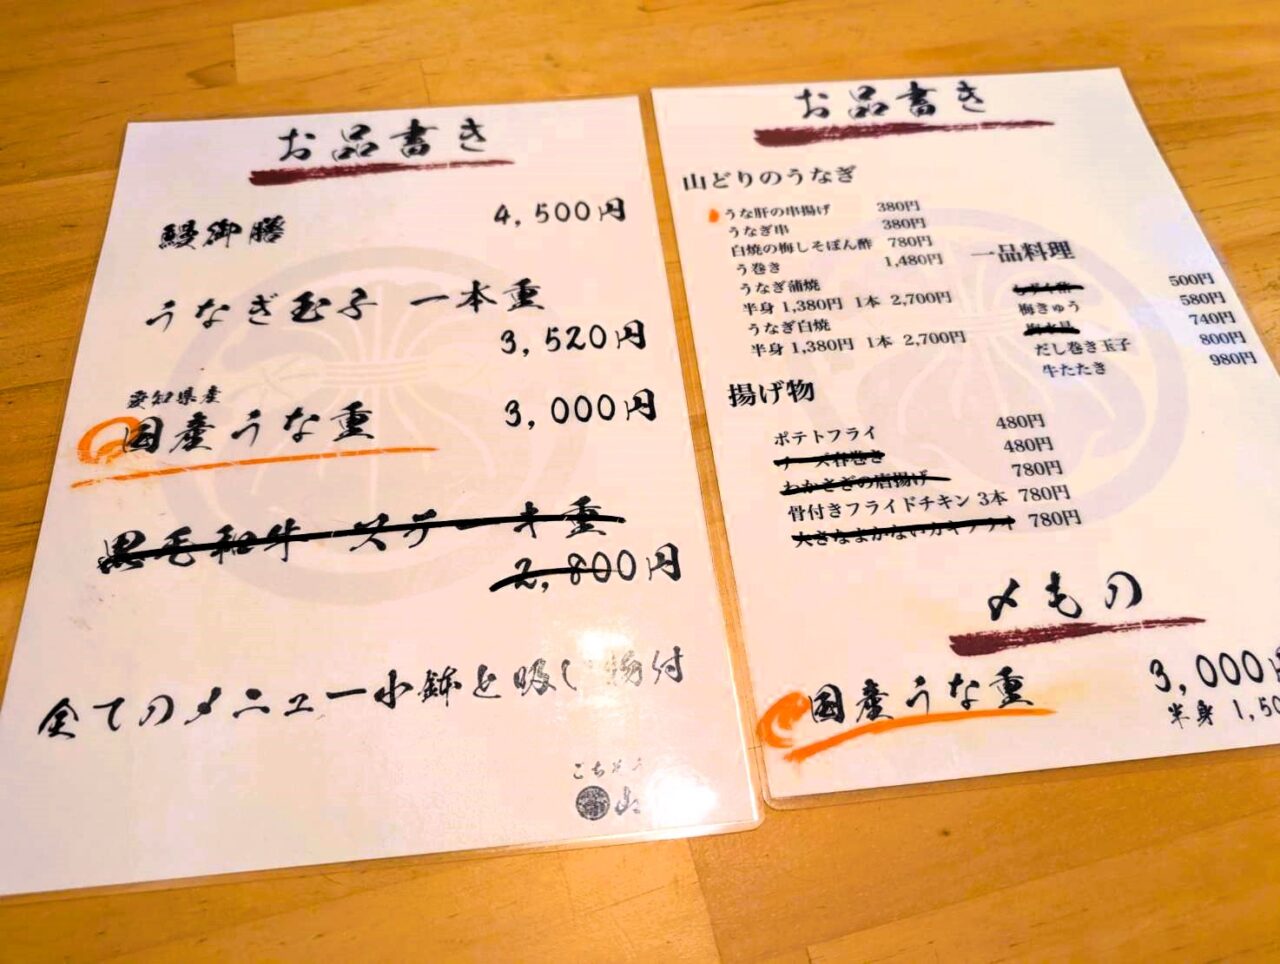 お品書き
鰻御膳 4,500円
うなぎ玉子 一本重
3,520円
愛知県産
国産うな重 3,000円
黒毛和牛 ステーキ重
2,800円
全てのメニュー小鉢と吸い物付
お品書き
山どりのうなぎ
うな肝の串揚げ 380円
うなぎ串 380円
白焼の梅しそぽん酢 780円
う巻き 1,480円
うなぎ蒲焼
半身 1,380円 1本 2,700円
うなぎ白焼
半身 1,380円 1本 2,700円
一品料理
500円
梅きゅう 580円
740円
だし巻き玉子 800円
牛たたき 980円
揚げ物
ポテトフライ 480円
チーズ春巻き 480円
わかさぎの唐揚げ 780円
骨付きフライドチキン 3本 780円
大きなまかないカキフライ 780円
〆もの
国産うな重 3,000円
半身 1,50